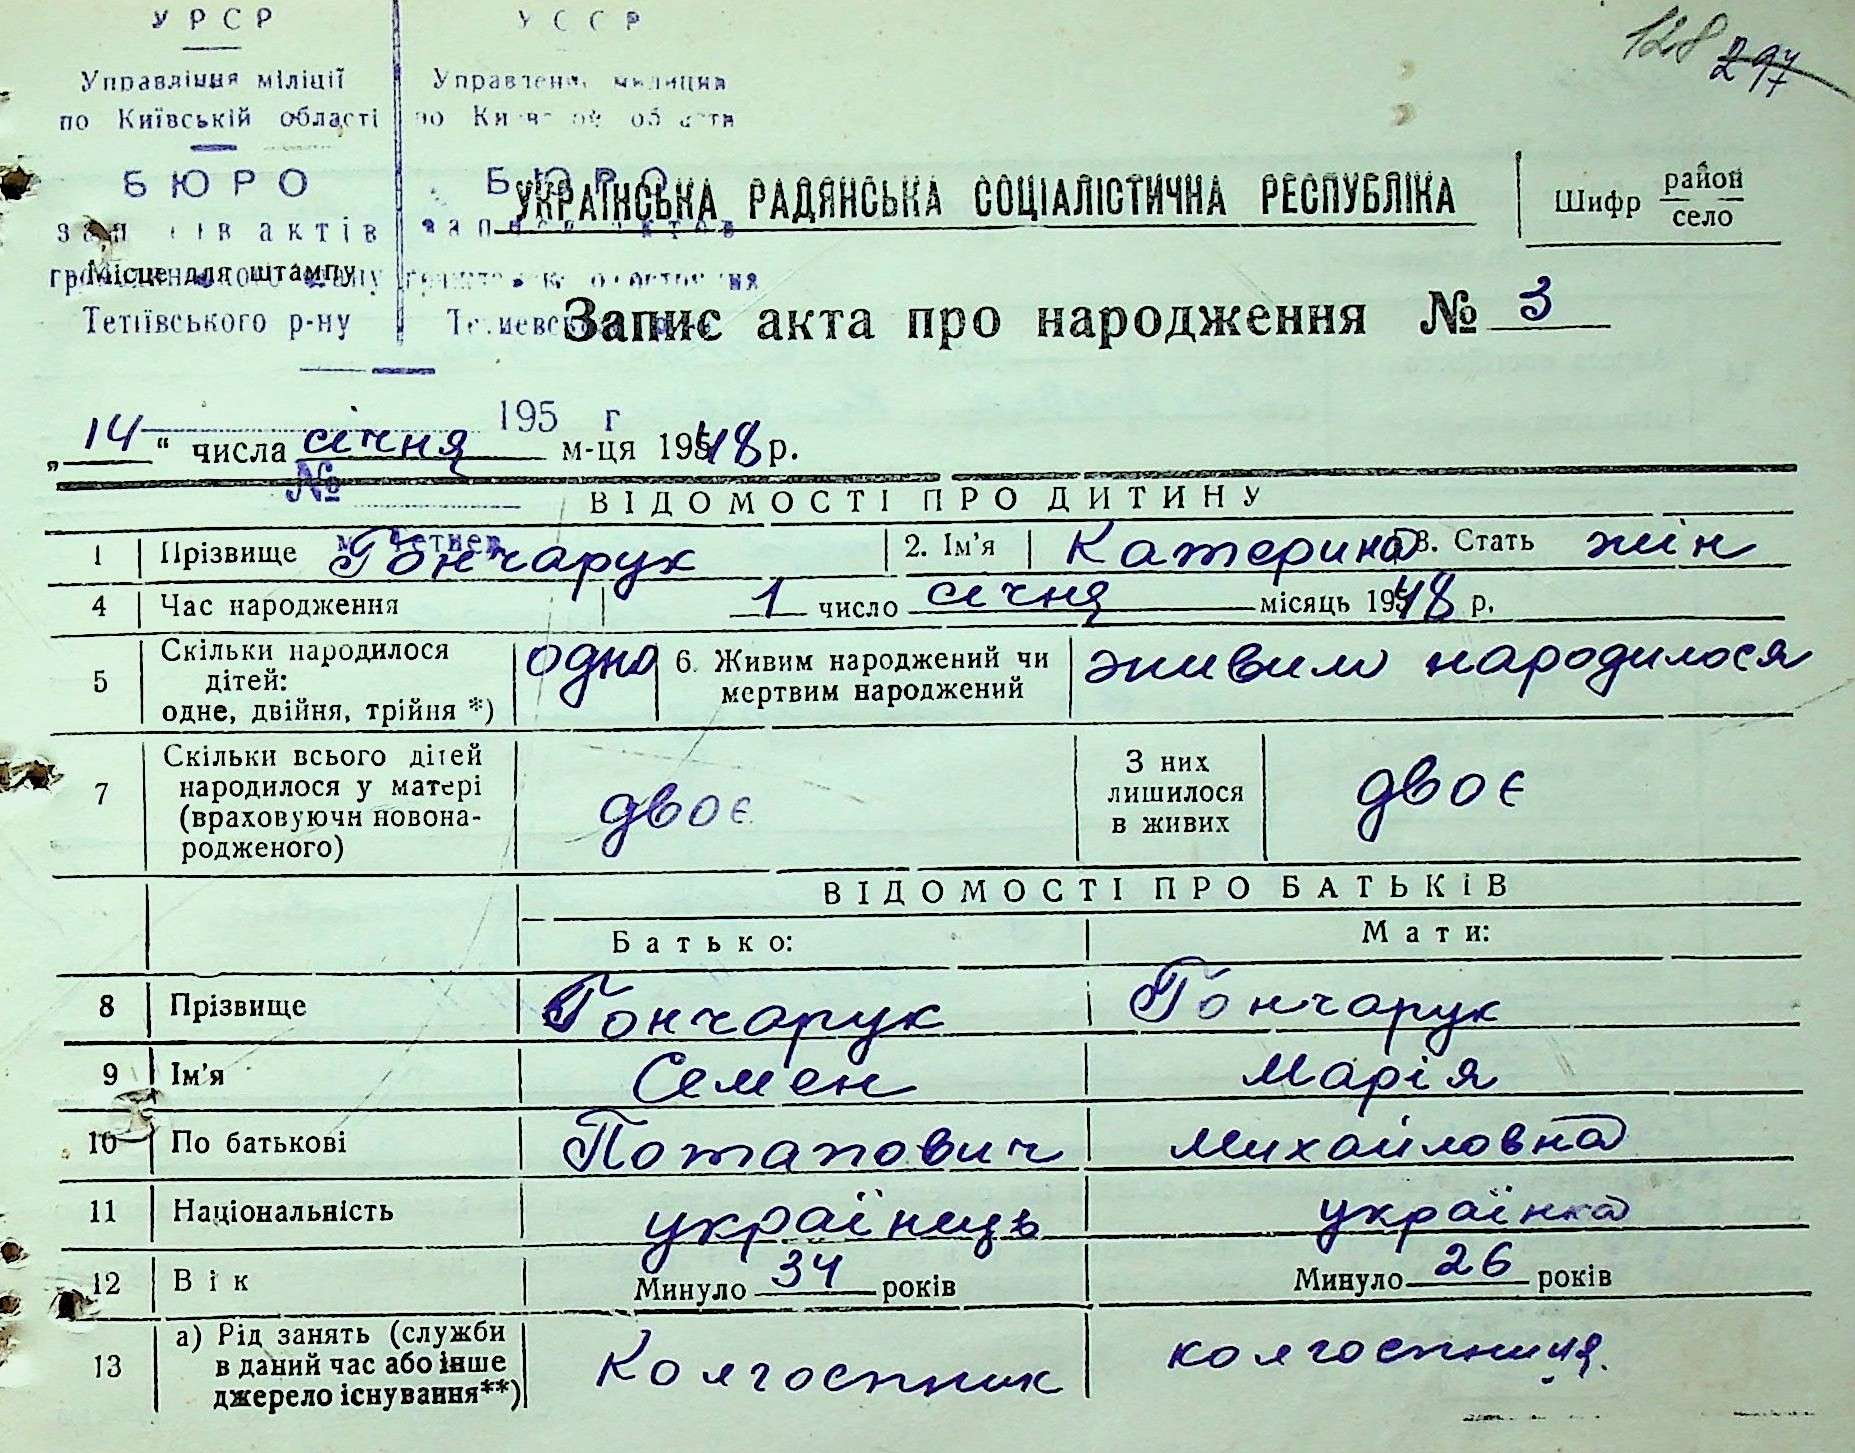 128 297
УРСР
Управління міліції
по Київській області
БЮРО
актів
Тетіївського р-ну
УССР
Управление милиции
БЮРО
УКРАЇНСЬКА РАДЯНСЬКА СОЦІАЛІСТИЧНА РЕСПУБЛІКА
Шифр район
село
Місце для штампу
Запис акта про народження № 3
195 г
„14“ числа січня м-ця 1948 р.
№
ВІДОМОСТІ ПРО ДИТИНУ
1 Прізвище Гончарук 2. Ім'я Катерина 3. Стать жін
4 Час народження 1 число січня місяць 1948 р.
5 Скільки народилося дітей: одне, двійня, трійня *) одно 6. Живим народжений чи мертвим народжений живим народилося
7 Скільки всього дітей народилося у матері (враховуючи новонародженого) двоє З них лишилося в живих двоє
ВІДОМОСТІ ПРО БАТЬКІВ
Батько: Мати:
8 Прізвище Гончарук Гончарук
9 Ім'я Семен Марія
10 По батькові Потапович Михайловна
11 Національність українець українка
12 Вік Минуло 34 років Минуло 26 років
13 а) Рід занять (служби в даний час або інше джерело існування**) Колгоспник колгоспниця.